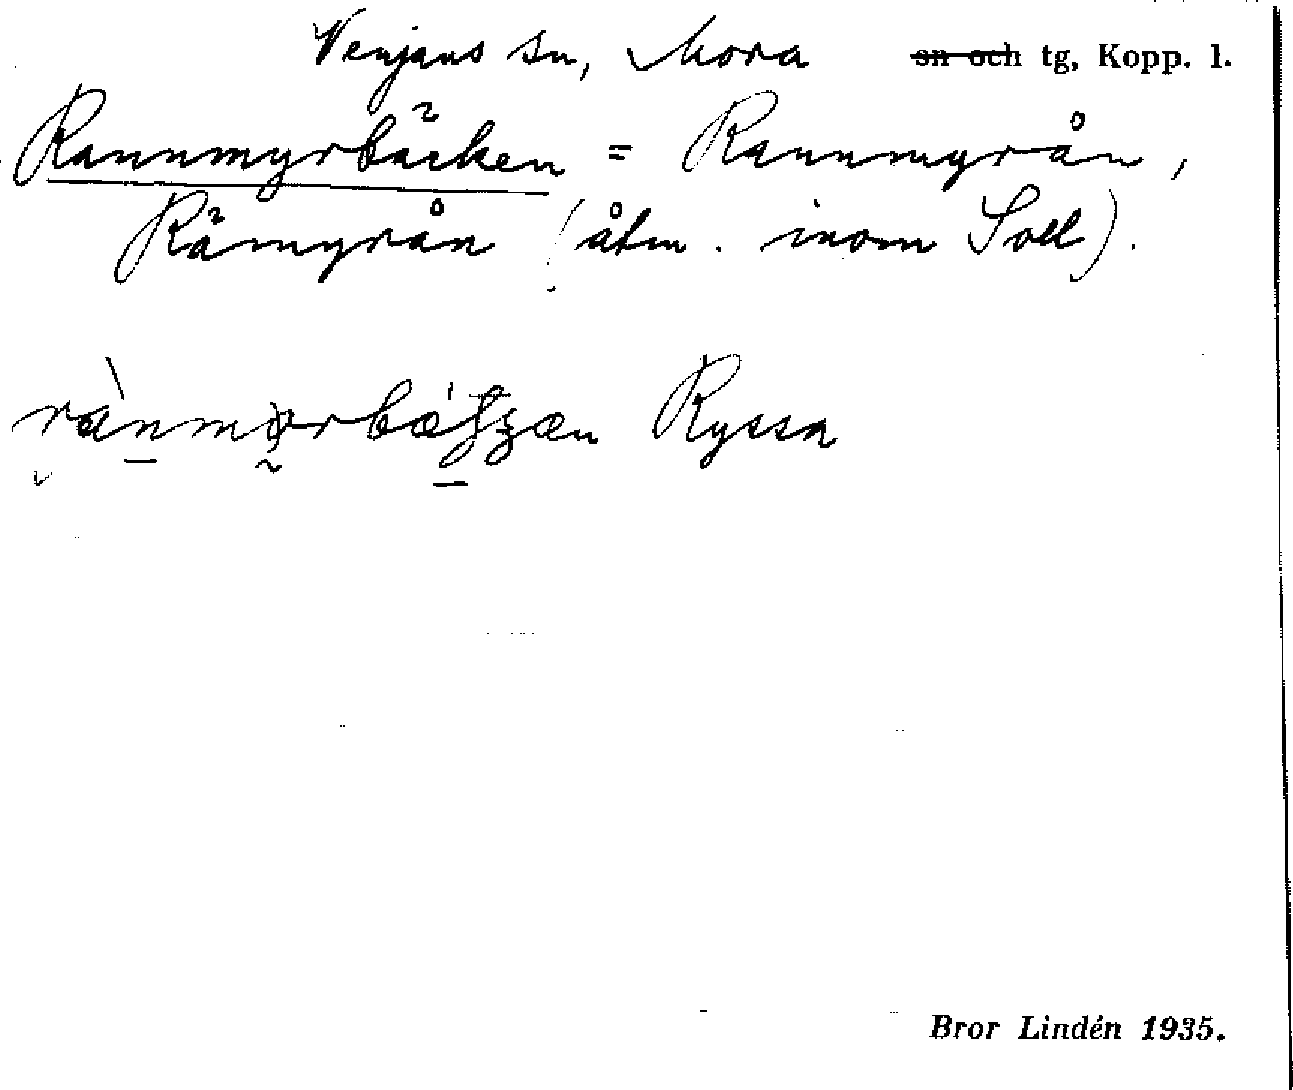 Venjans sn, Mora sn och tg, Kopp. l.
Rannmyrbäcken = Rannmyrån,
Rämyrån (åtm. inom Soll).
Ryssa
Bror Lindén 1935.